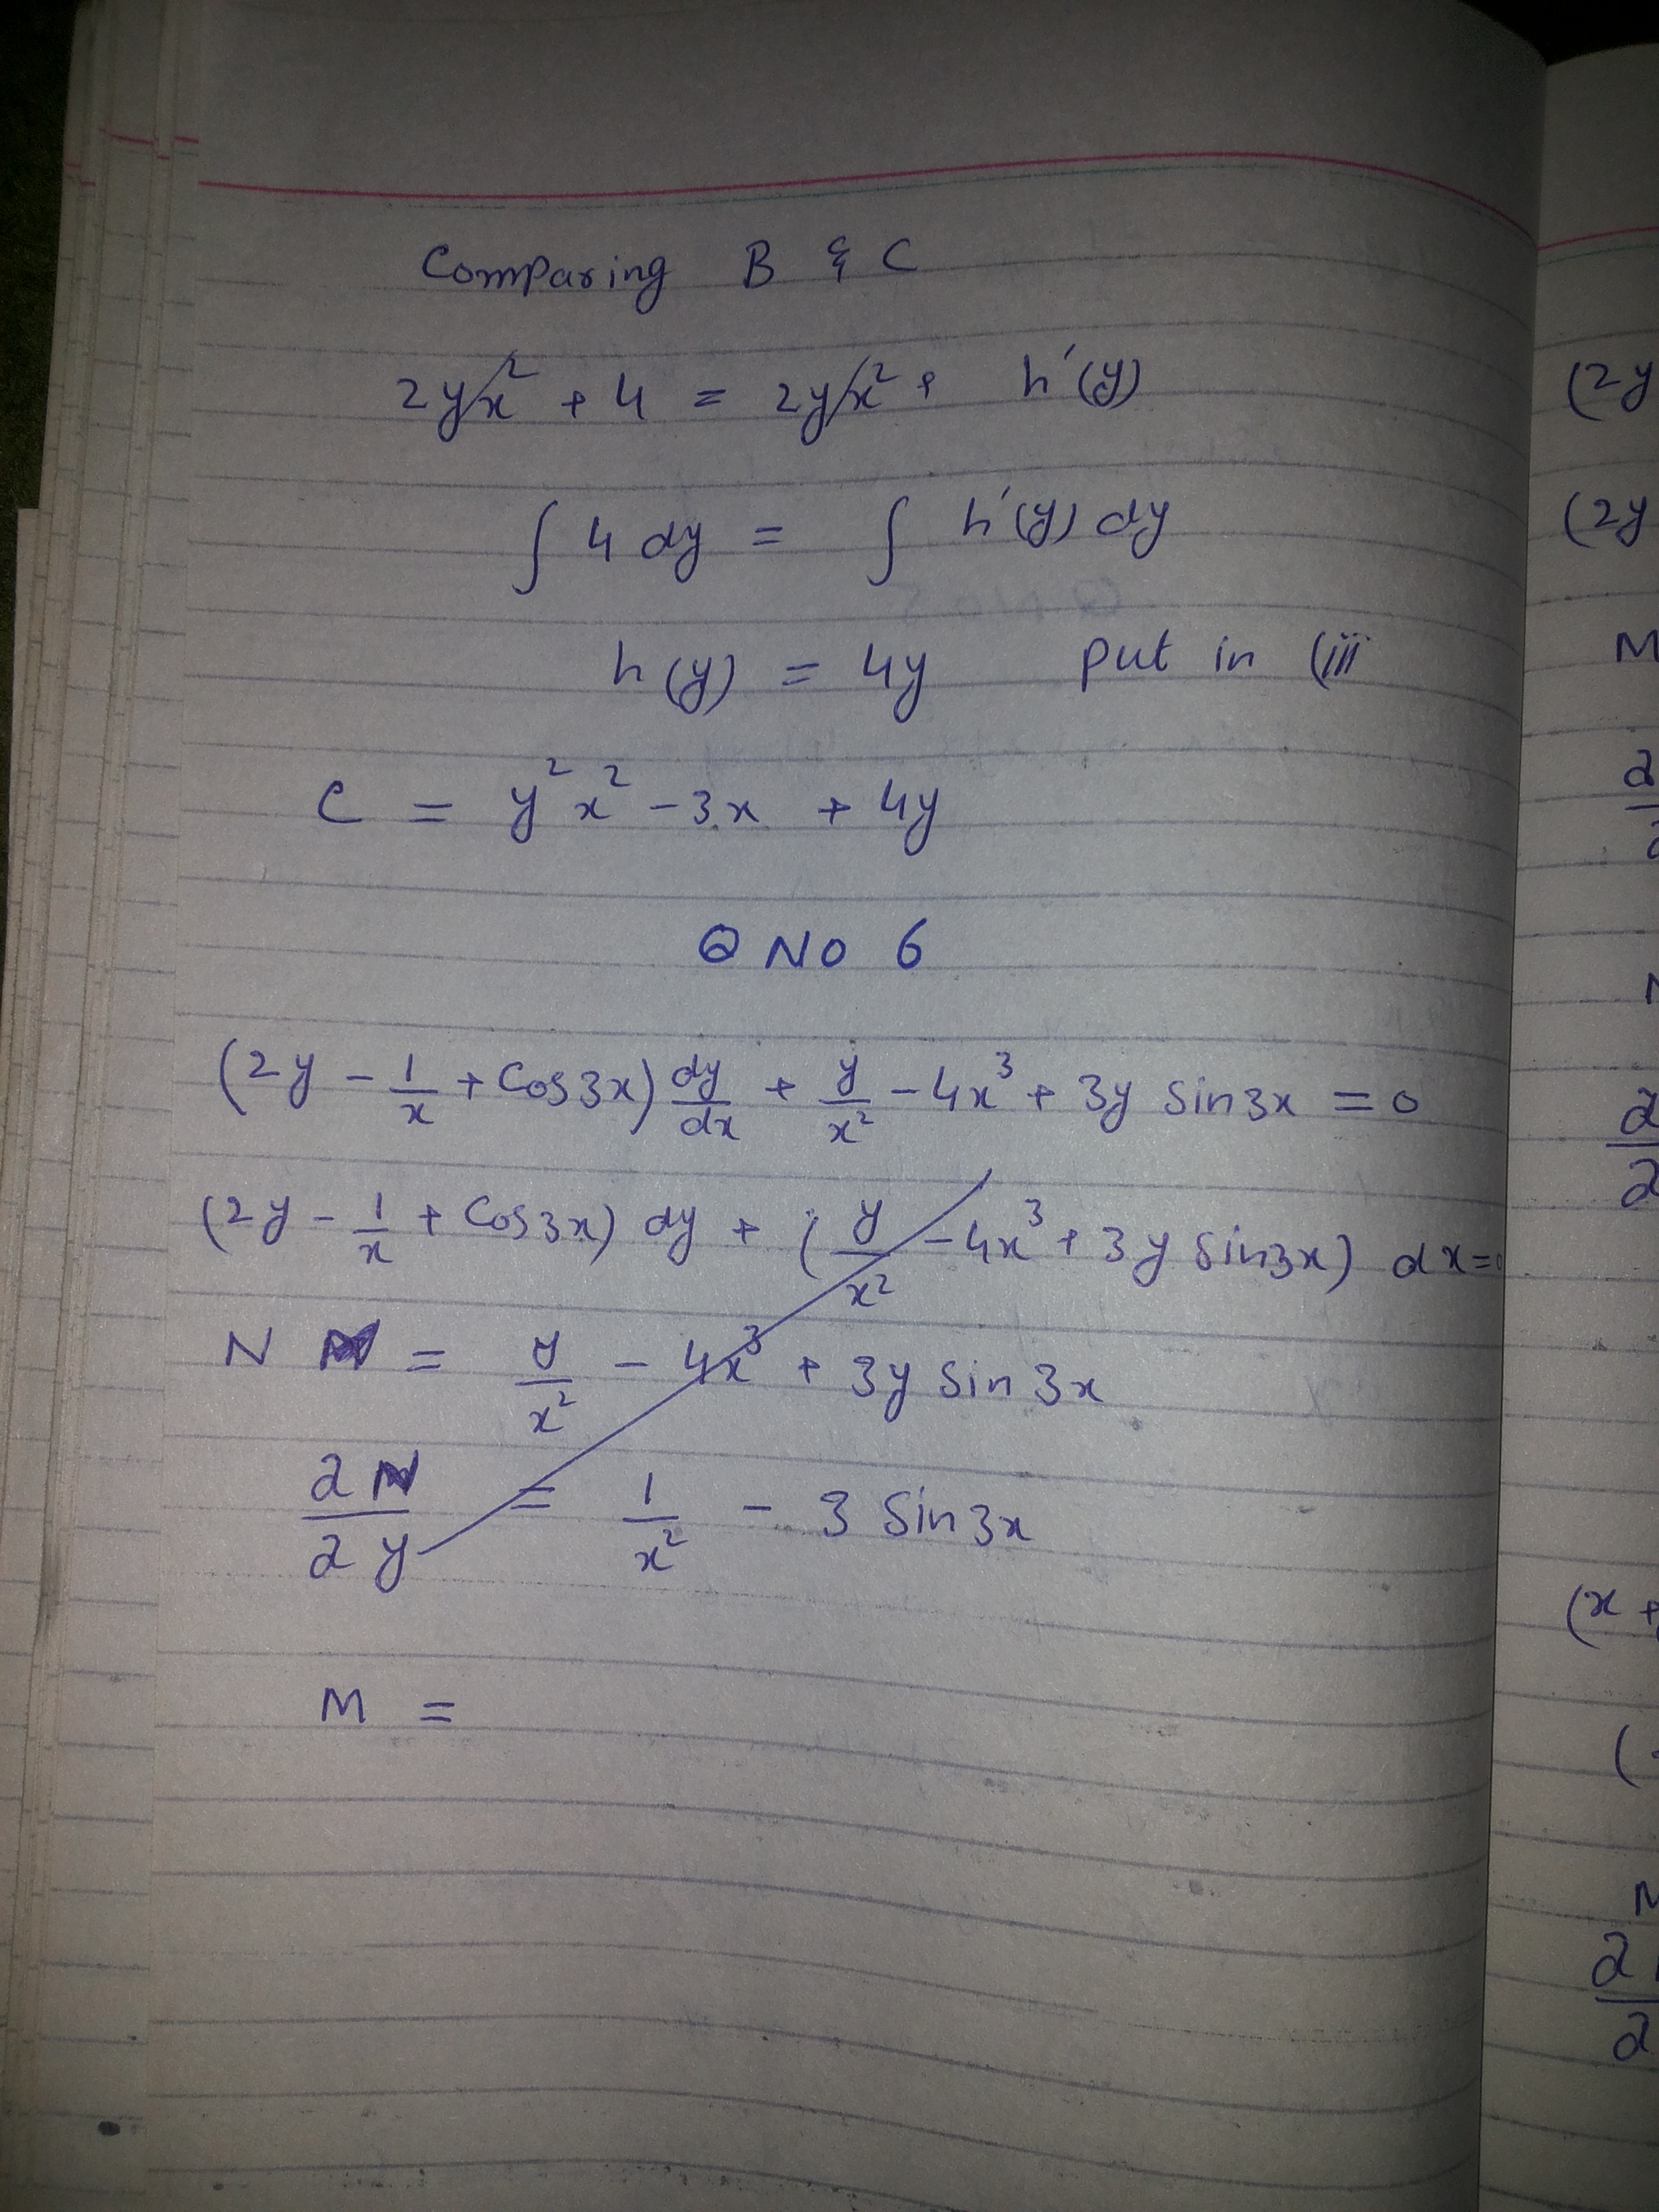 Comparing B & C
2yx² + 4 = 2yx² + h'(y)
∫ 4 dy = ∫ h'(y) dy
h(y) = 4y put in (iii
C = y²x² - 3x + 4y
Q NO 6
(2y - 1/x + Cos3x) dy/dx + y/x² - 4x³ + 3y Sin3x = 0
(2y - 1/x + Cos3x) dy + (y/x² - 4x³ + 3y Sin3x) dx = 0
N = y/x² - 4x³ + 3y Sin 3x
∂N/∂y = 1/x² - 3 Sin3x
M =
(2y
(2y
M
∂
N
∂
∂
(x +
(
∂
∂